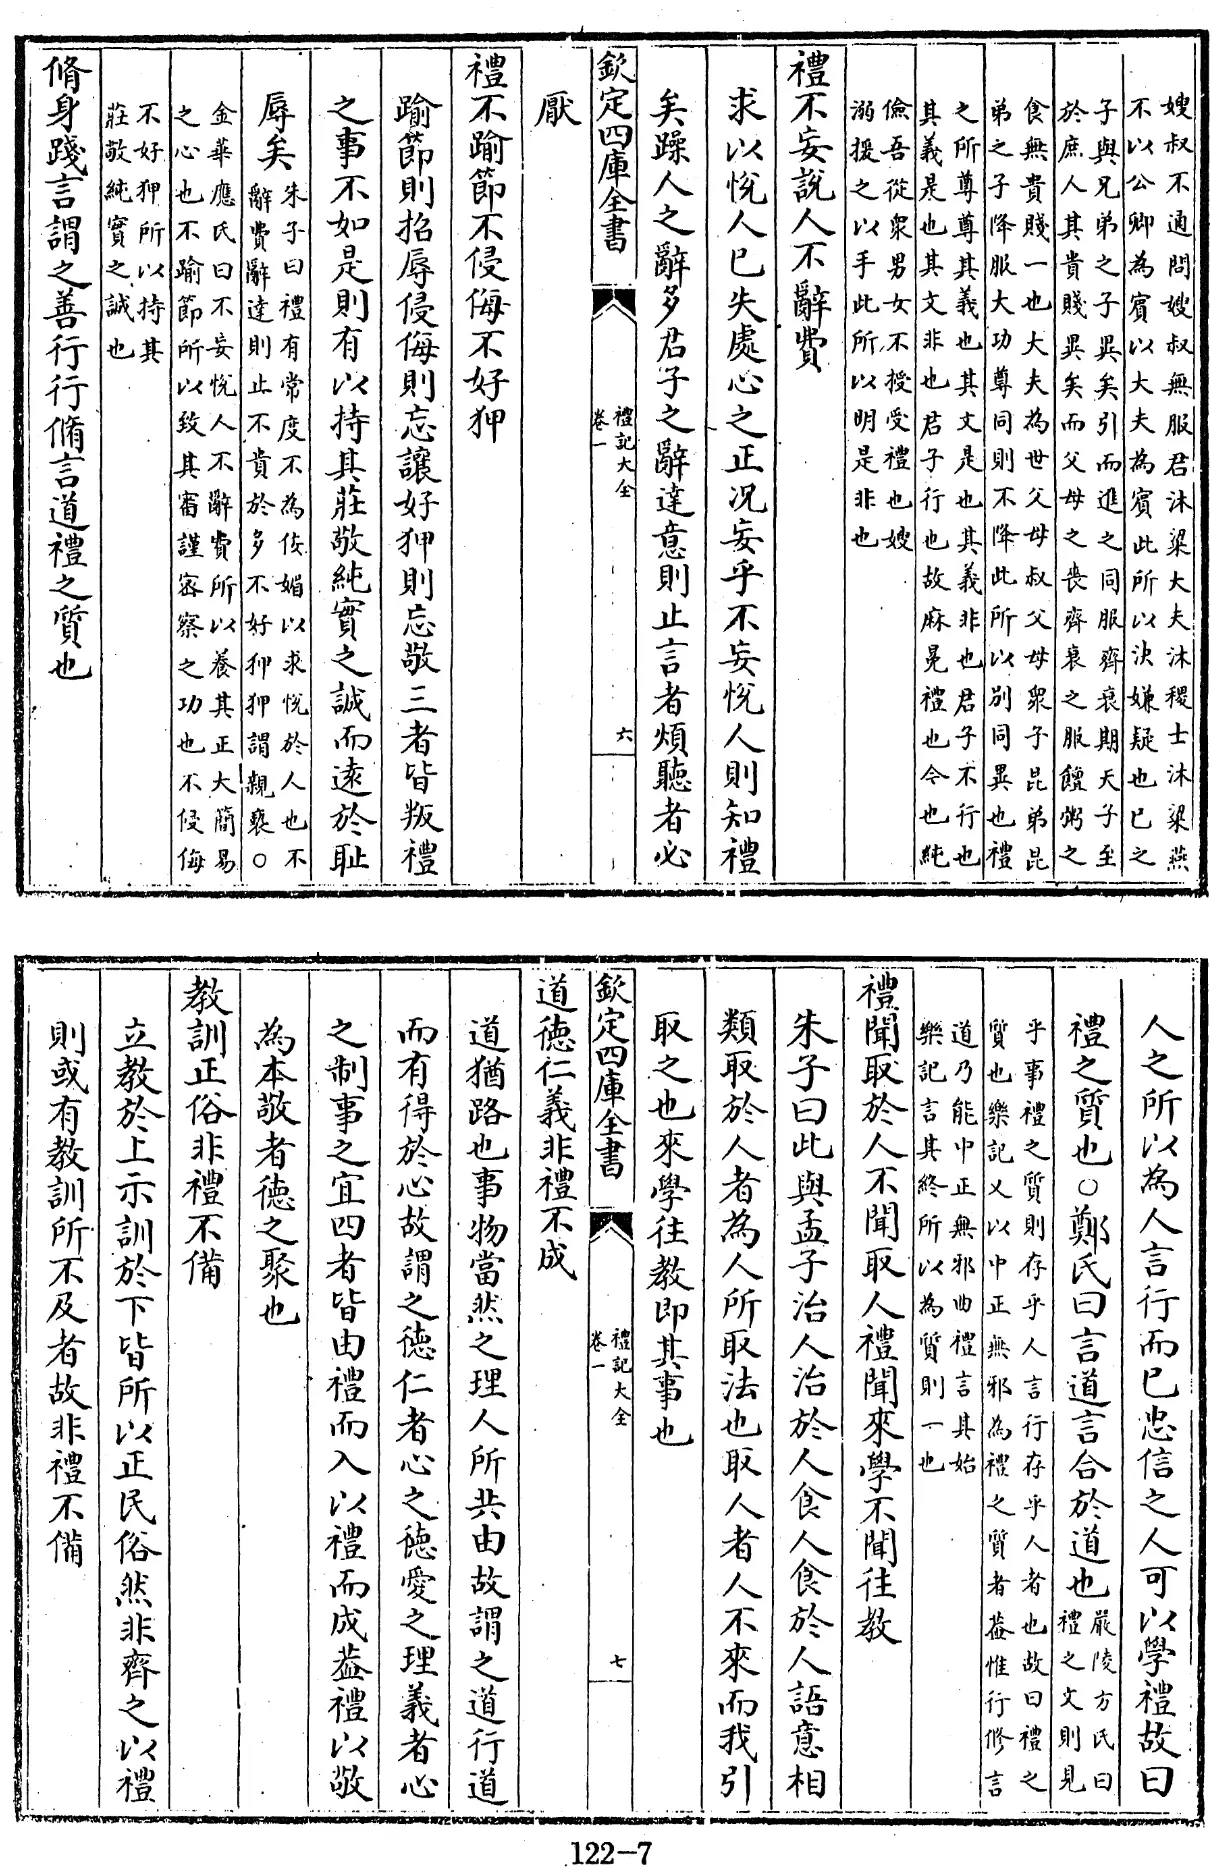 嫂叔不通問嫂叔無服君沐粱大夫沐稷士沐粱燕
不以公卿為賓以大夫為賓此所以決嫌疑也已之
子與兄弟之子異矣引而進之同服齊衰期天子至
於庶人其貴賤異矣而父母之喪齊衰之服饘粥之
食無貴賤一也大夫為世父母叔父母衆子昆弟昆
弟之子降服大功尊同則不降此所以別同異也禮
之所尊尊其義也其文是也其義非也君子不行也
其義是也其文非也君子行也故麻冕禮也今也純
儉吾從衆男女不授受禮也嫂
溺援之以手此所以明是非也
禮不妄說人不辭費
求以悅人已失處心之正況妄乎不妄悅人則知禮
矣躁人之辭多君子之辭達意則止言者煩聽者必
欽定四庫全書
禮記大全
卷一
六
厭
禮不踰節不侵侮不好狎
踰節則招辱侵侮則忘讓好狎則忘敬三者皆叛禮
之事不如是則有以持其莊敬純實之誠而遠於恥
辱矣
朱子曰禮有常度不為佞媚以求悅於人也不
辭費辭達則止不貴於多不好狎狎謂親褻○
金華應氏曰不妄悅人不辭費所以養其正大簡易
之心也不踰節所以致其審謹密察之功也不侵侮
不好狎所以持其
莊敬純實之誠也
脩身踐言謂之善行行脩言道禮之質也
人之所以為人言行而已忠信之人可以學禮故曰
禮之質也○鄭氏曰言道言合於道也
嚴陵方氏曰
禮之文則見
乎事禮之質則存乎人言行存乎人者也故曰禮之
質也樂記又以中正無邪為禮之質者葢惟行修言
道乃能中正無邪曲禮言其始
樂記言其終所以為質則一也
禮聞取於人不聞取人禮聞來學不聞往教
朱子曰此與孟子治人治於人食人食於人語意相
類取於人者為人所取法也取人者人不來而我引
取之也來學往教即其事也
欽定四庫全書
禮記大全
卷一
七
道德仁義非禮不成
道猶路也事物當然之理人所共由故謂之道行道
而有得於心故謂之德仁者心之德愛之理義者心
之制事之宜四者皆由禮而入以禮而成葢禮以敬
為本敬者德之聚也
教訓正俗非禮不備
立教於上示訓於下皆所以正民俗然非齊之以禮
則或有教訓所不及者故非禮不備
122-7